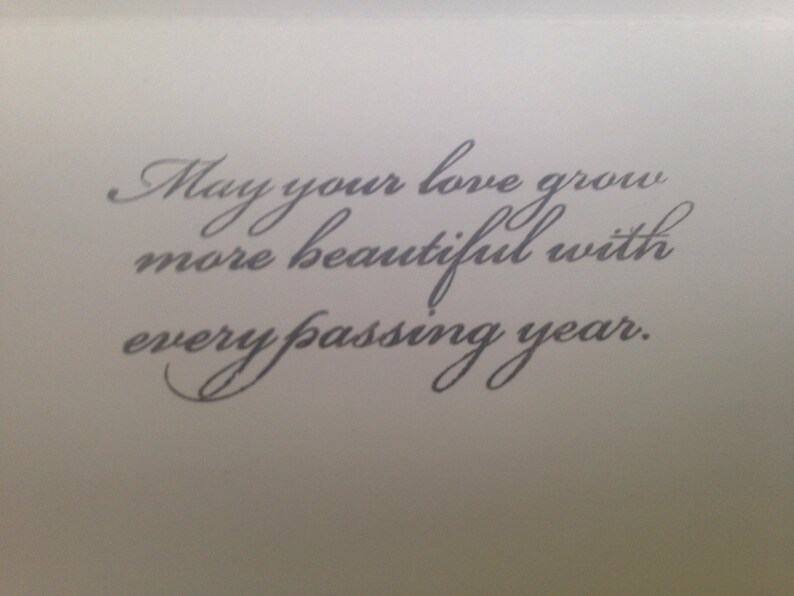 May your love grow
more beautiful with
every passing year.